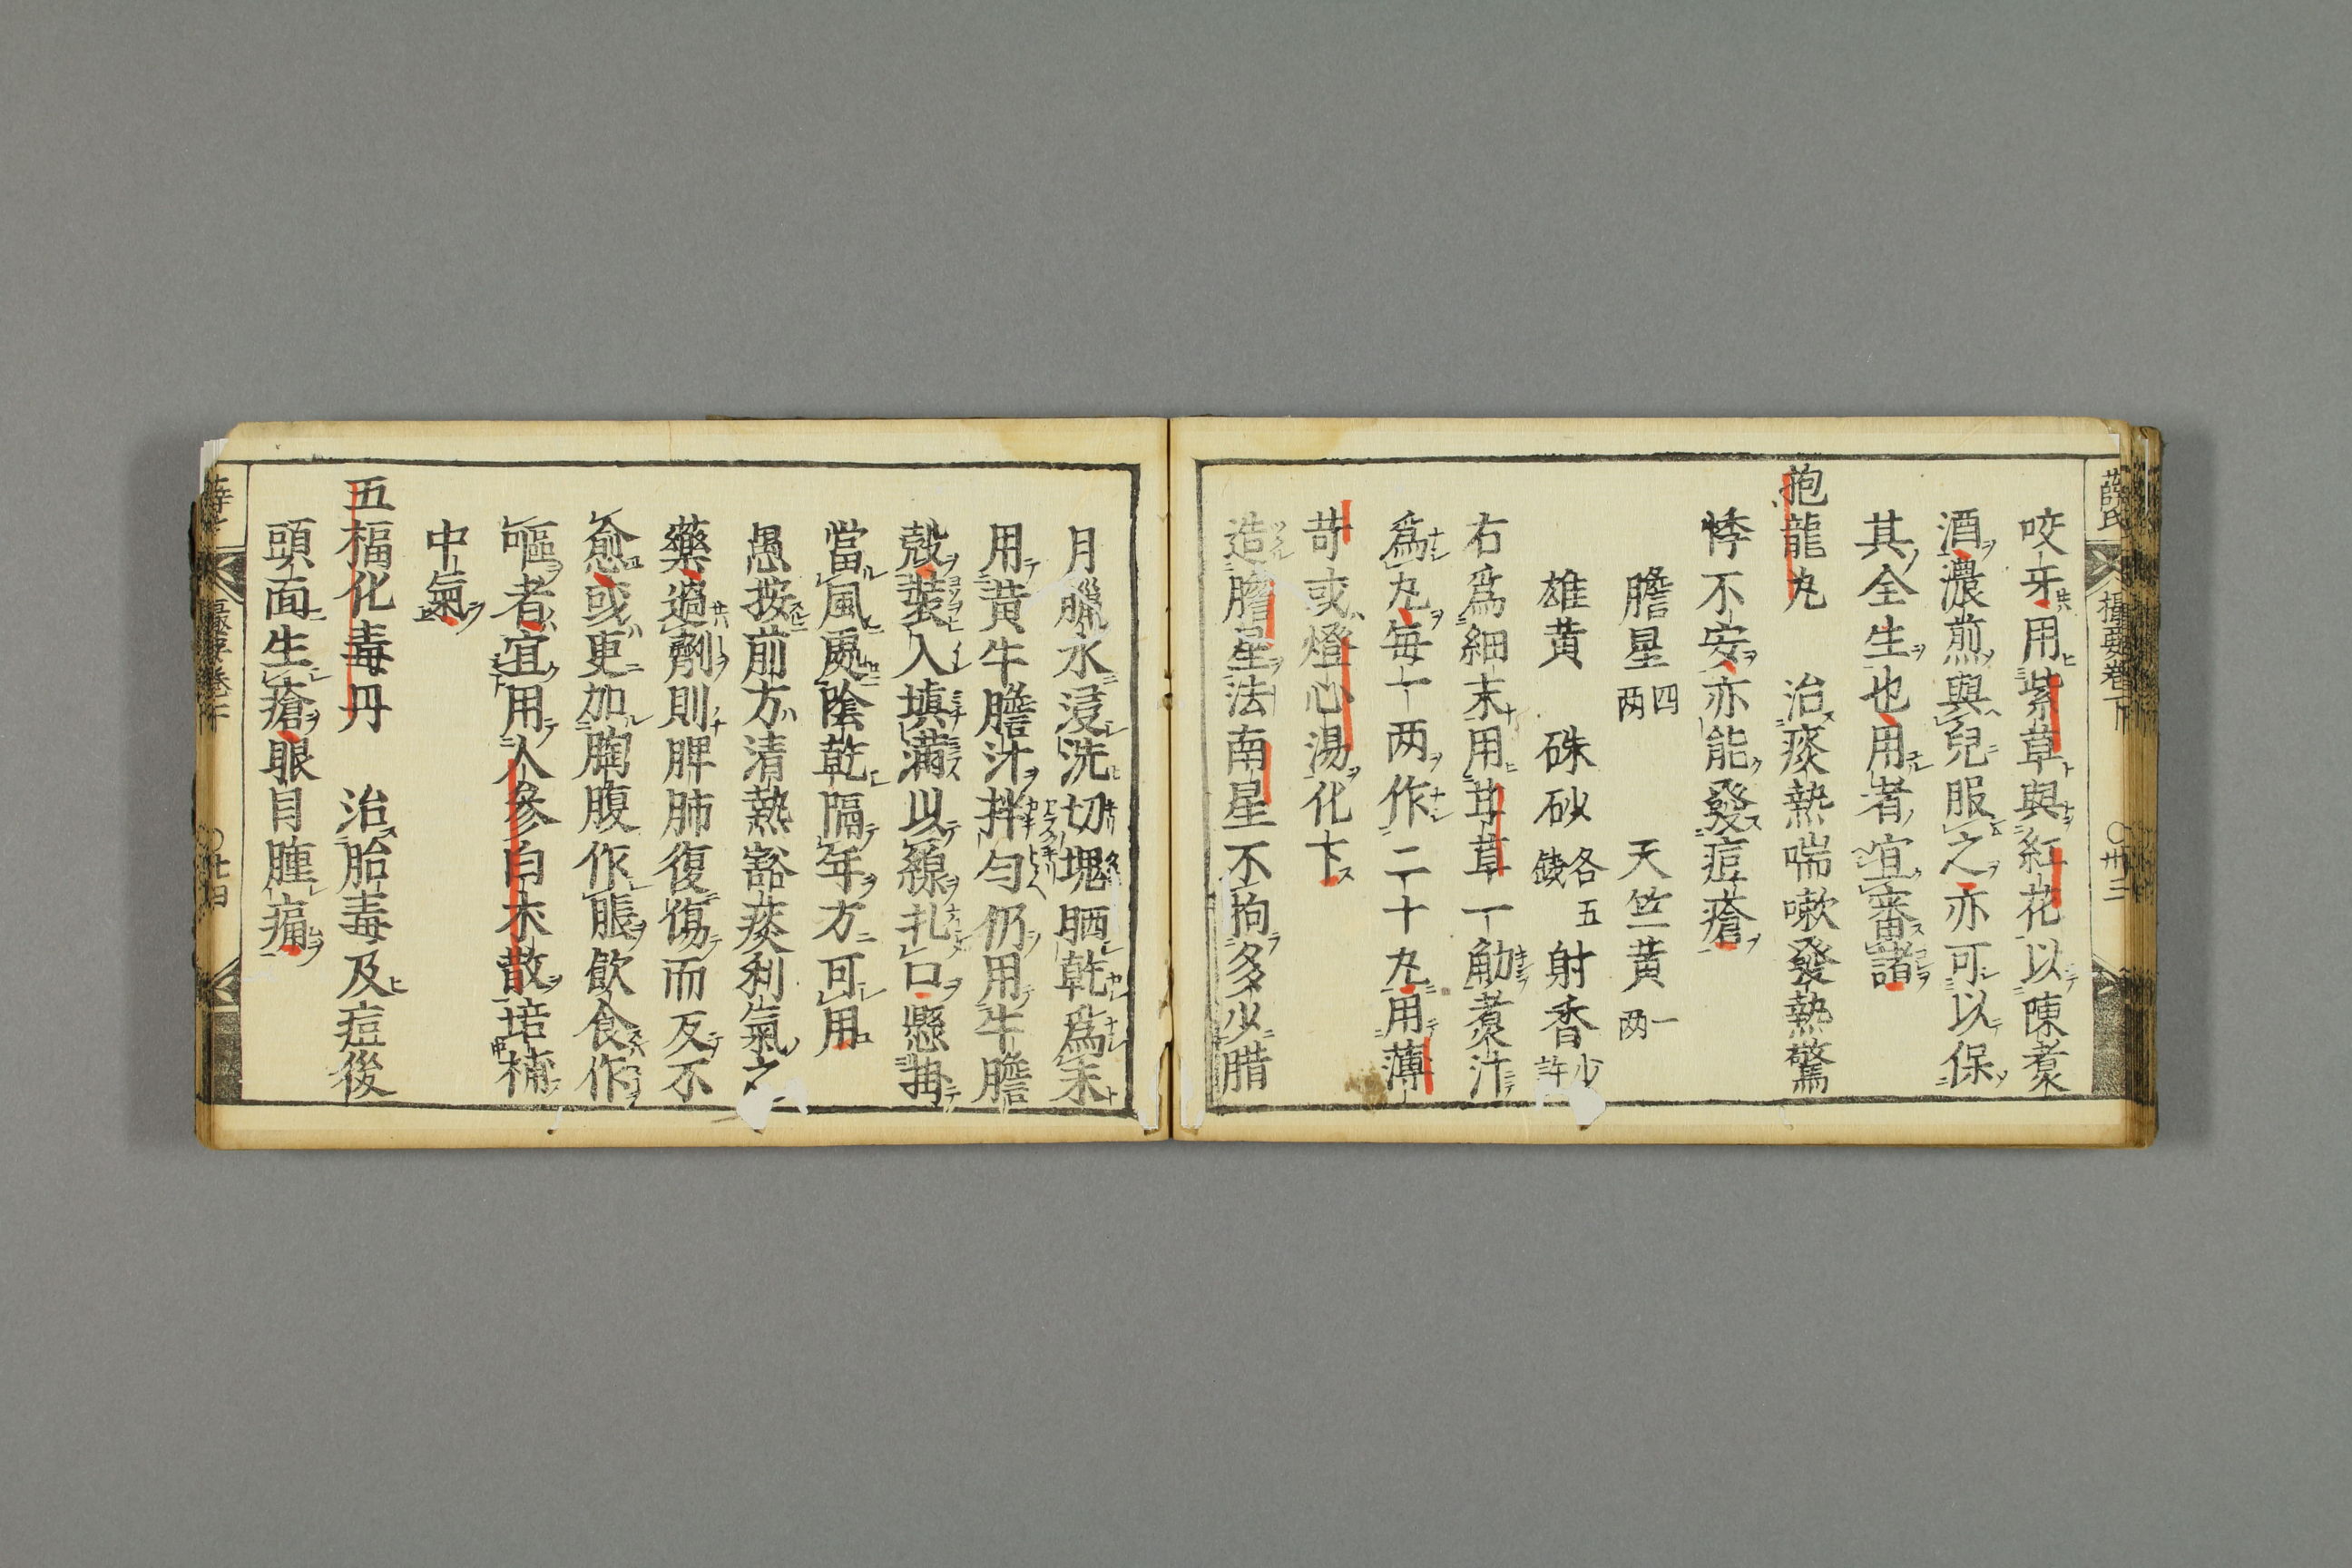 薛氏 撮要卷下 ○卅三
咬牙用紫草與紅花以陳煮
酒濃煎與兒服之亦可以保
其全生也用者宜審諸
抱龍丸 治痰熱喘嗽發熱驚
悸不安亦能發痘瘡
膽星四两 天竺黃一两
雄黃 硃砂各五錢 射香少許
右爲細末用甘草一觔煮汁
爲丸每一两作二十丸用薄
苛或燈心湯化下
造膽星法南星不拘多少腊
月臘水浸洗切塊晒乾爲末
用黃牛膽汁拌勻仍用牛膽
殼裝入填滿以線扎口懸掛
當風處陰乾隔年方可用
愚按前方清熱豁痰利氣之
藥過劑則脾肺復傷而反不
愈或更加胸腹作脹飲食作
嘔者宜用人參白朮散培補
中氣
五福化毒丹 治胎毒及痘後
頭面生瘡眼目腫痛